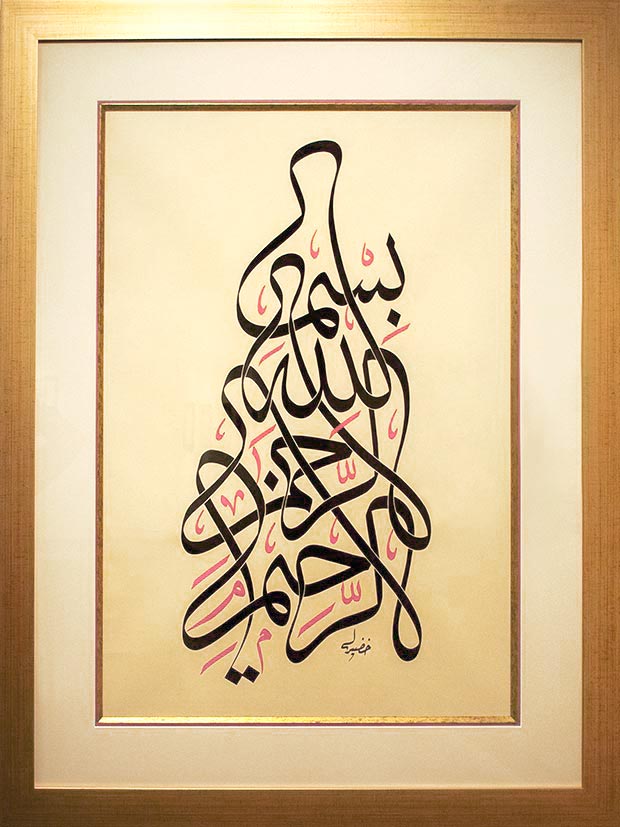 بِسْمِ
اللهِ
الرَّحْمنِ
الرَّحِيمِ